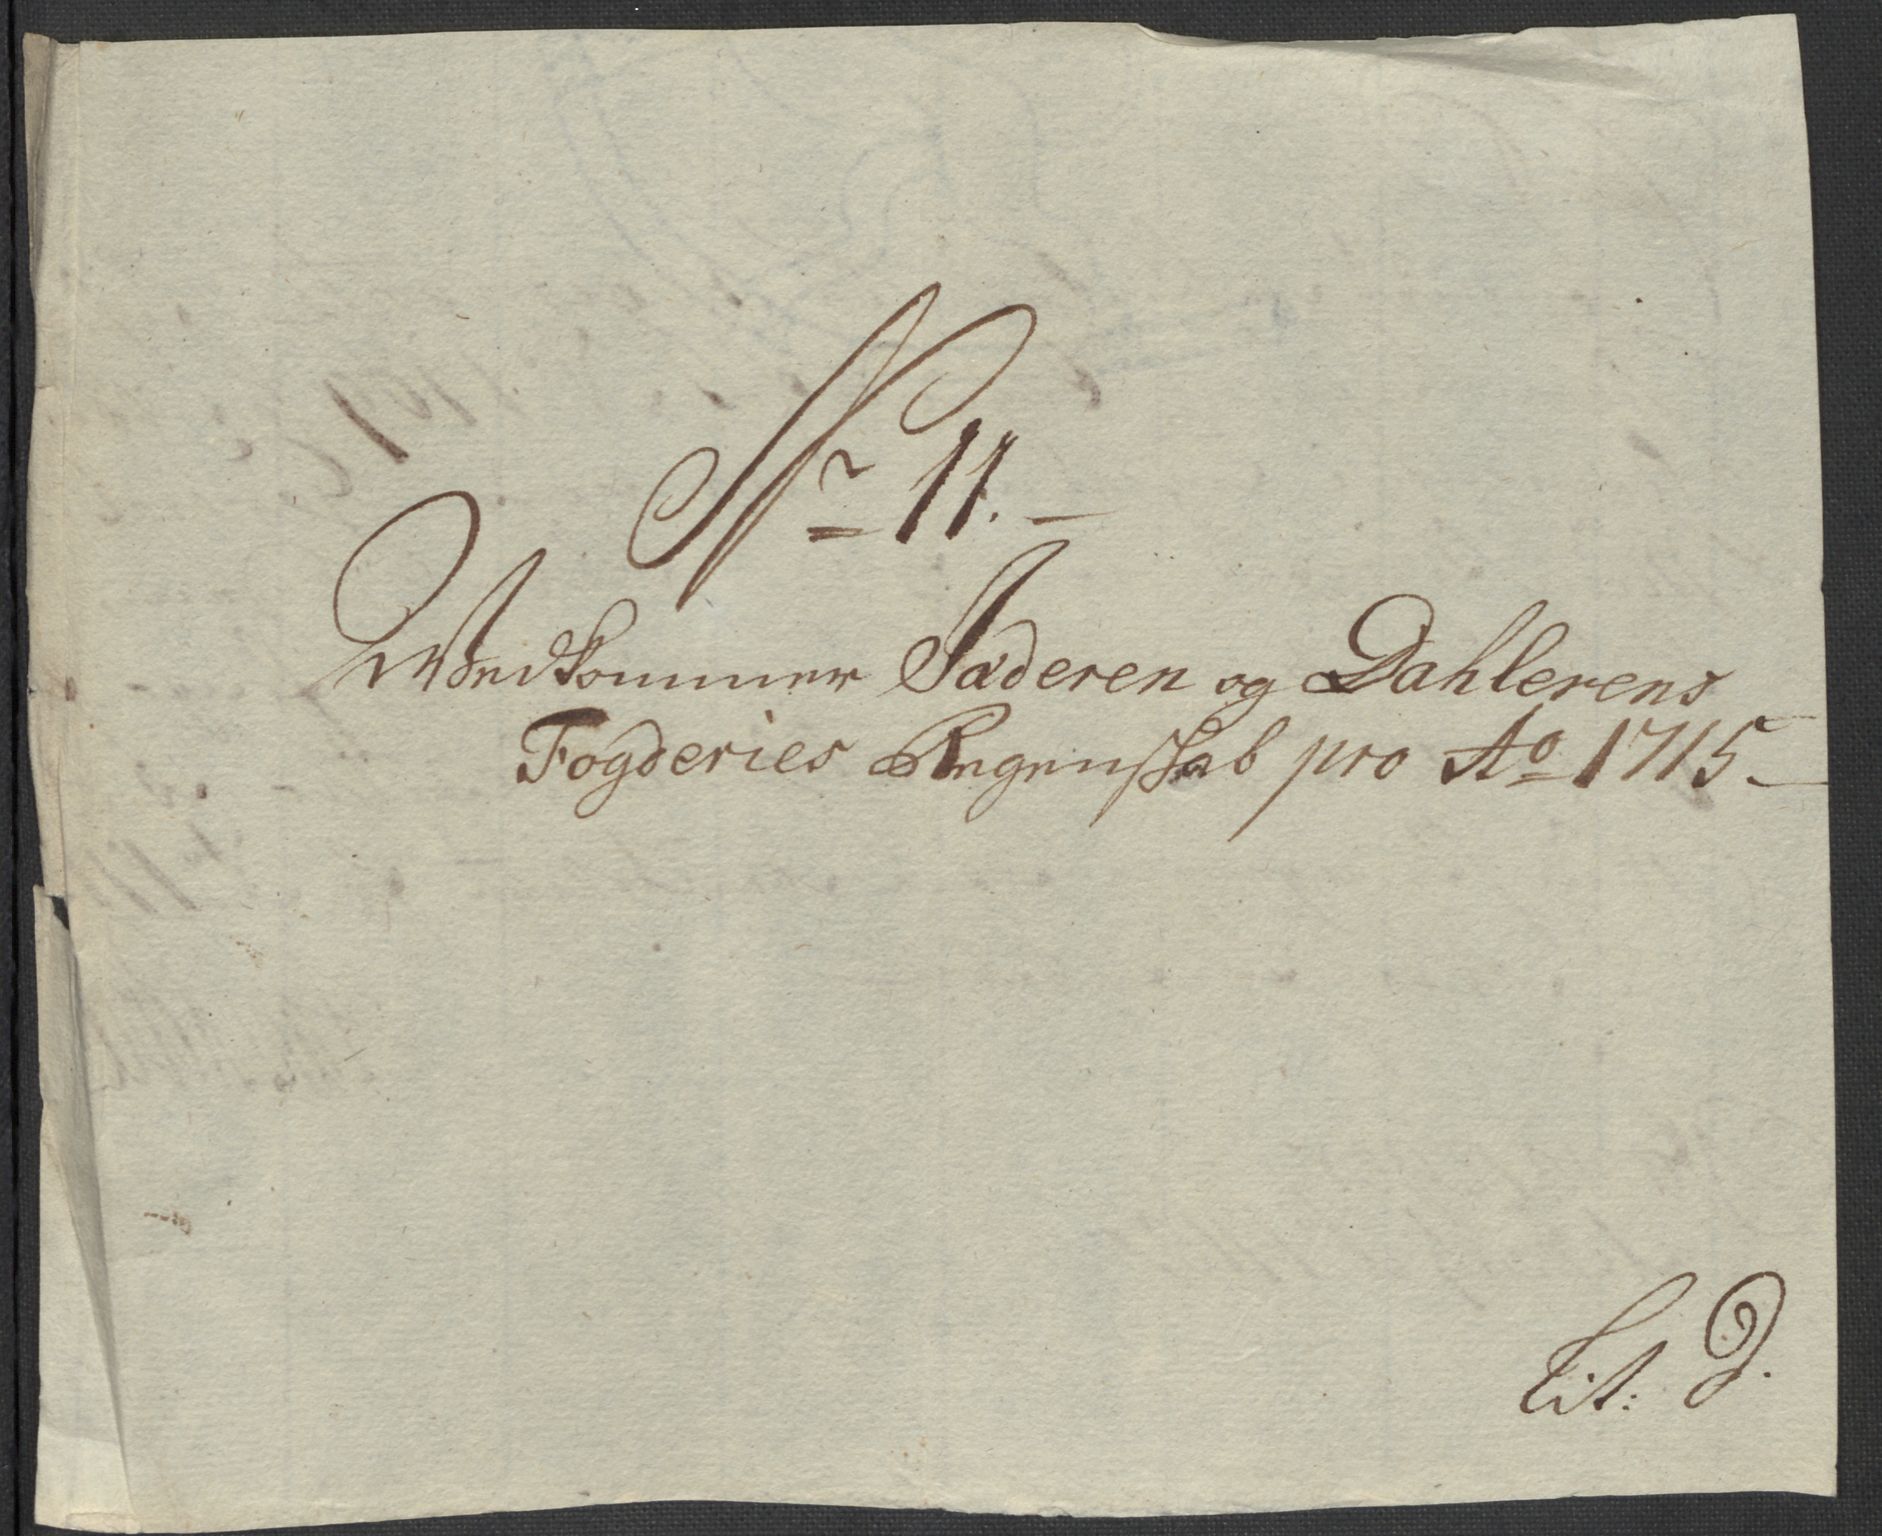 Nr 11.
Wedkommer Jæderen og Dahlerens
Fogderies Regenskab pro Ao 1715
Lit: D.